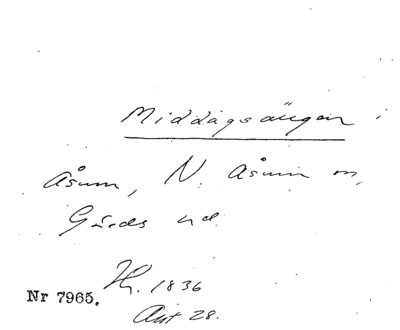 Middagsängen i
Åsum, N. Åsum sn,
Gärds hd.
H. 1836
Nr 7965.
Akt 28.